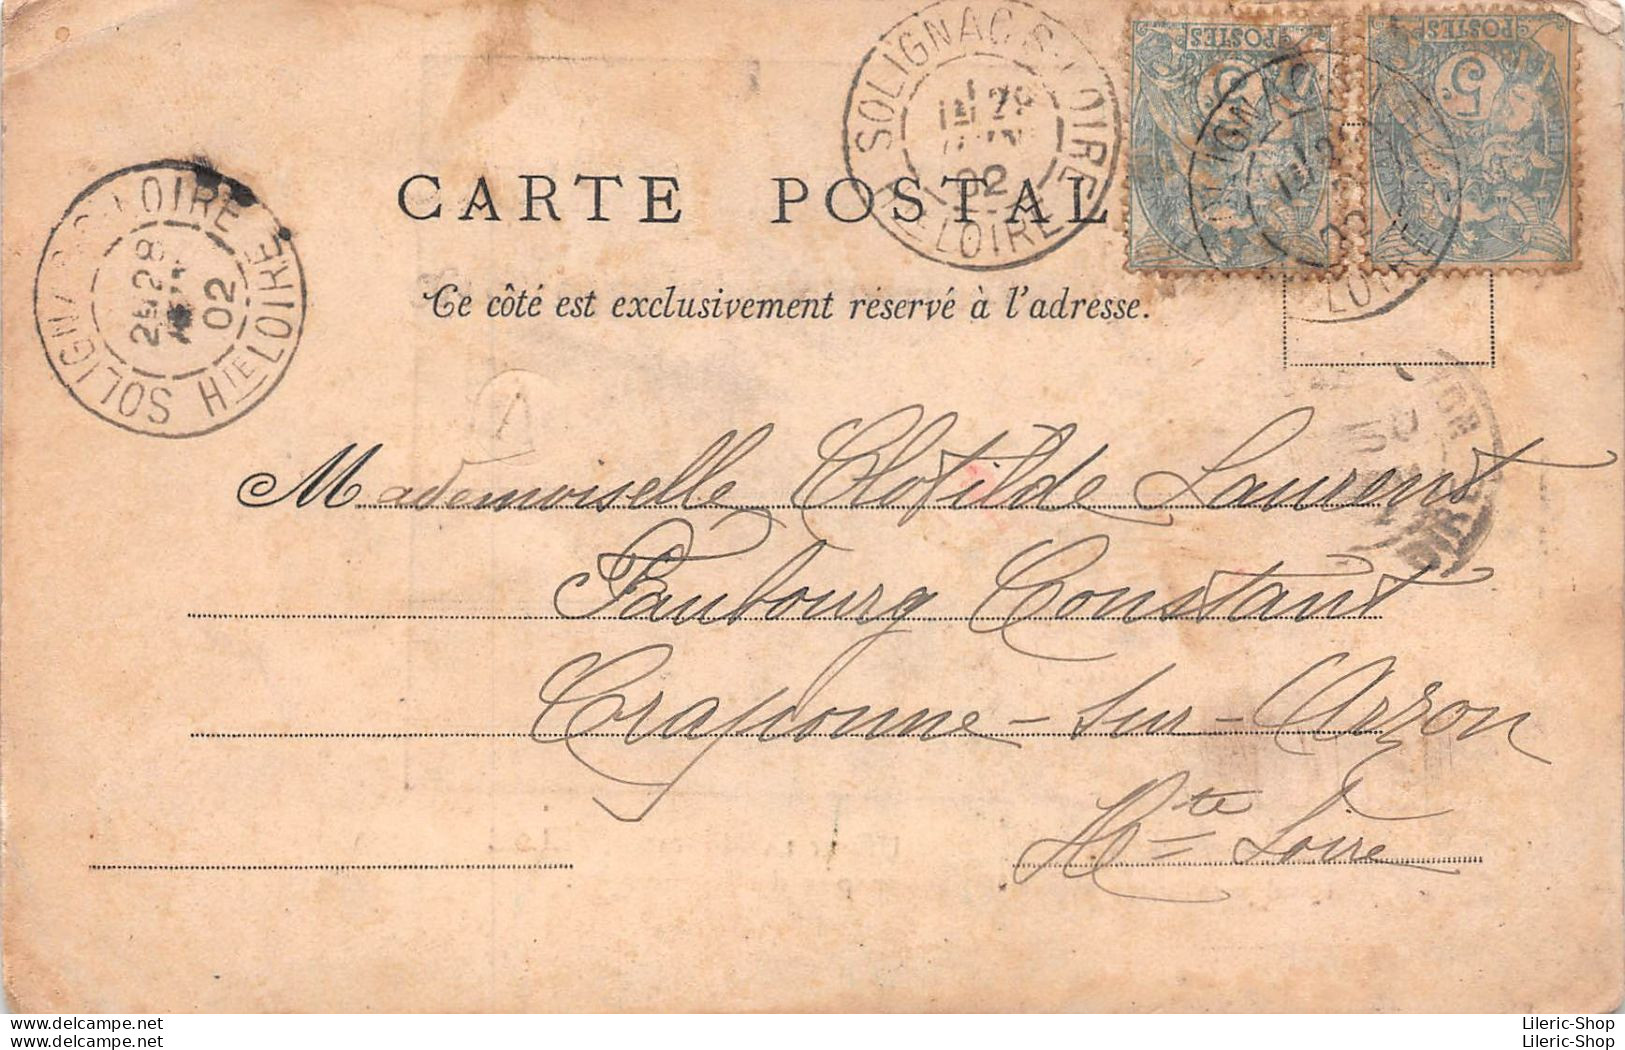 SOLIGNAC S. LOIRE
02
Hte LOIRE
POSTES
5
POSTES
5
SOLIGNAC S. LOIRE
2E 28
02
Hte LOIRE
CARTE POSTALE
Ce côté est exclusivement réservé à l'adresse.
Mademoiselle Clotilde Laurent
Faubourg Constant
Craponne-sur-Arzon
Hte Loire
delcampe.net
Lileric-Shop
delcampe.net
Lileric-Shop